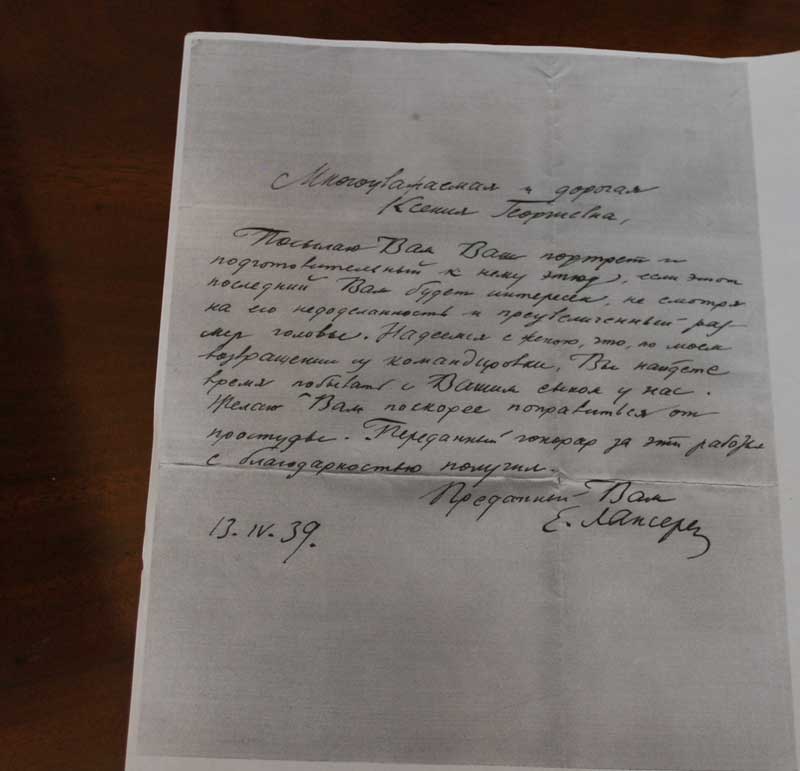 Многоуважаемая и дорогая
Ксения Георгиевна,
Посылаю Вам Ваш портрет и
подготовительный к нему этюд, если этот
последний Вам будет интересен, не смотря
на его недоделанность и преувеличенный раз-
мер головы. Надеемся с женою, что, по моем
возвращении из командировки, Вы найдете
время побывать с Вашим сыном у нас.
Желаю Вам поскорее поправиться от
простуды. Переданный гонорар за эти работы
с благодарностью получил.
Преданный Вам
Е. Лансере
13.IV.39.